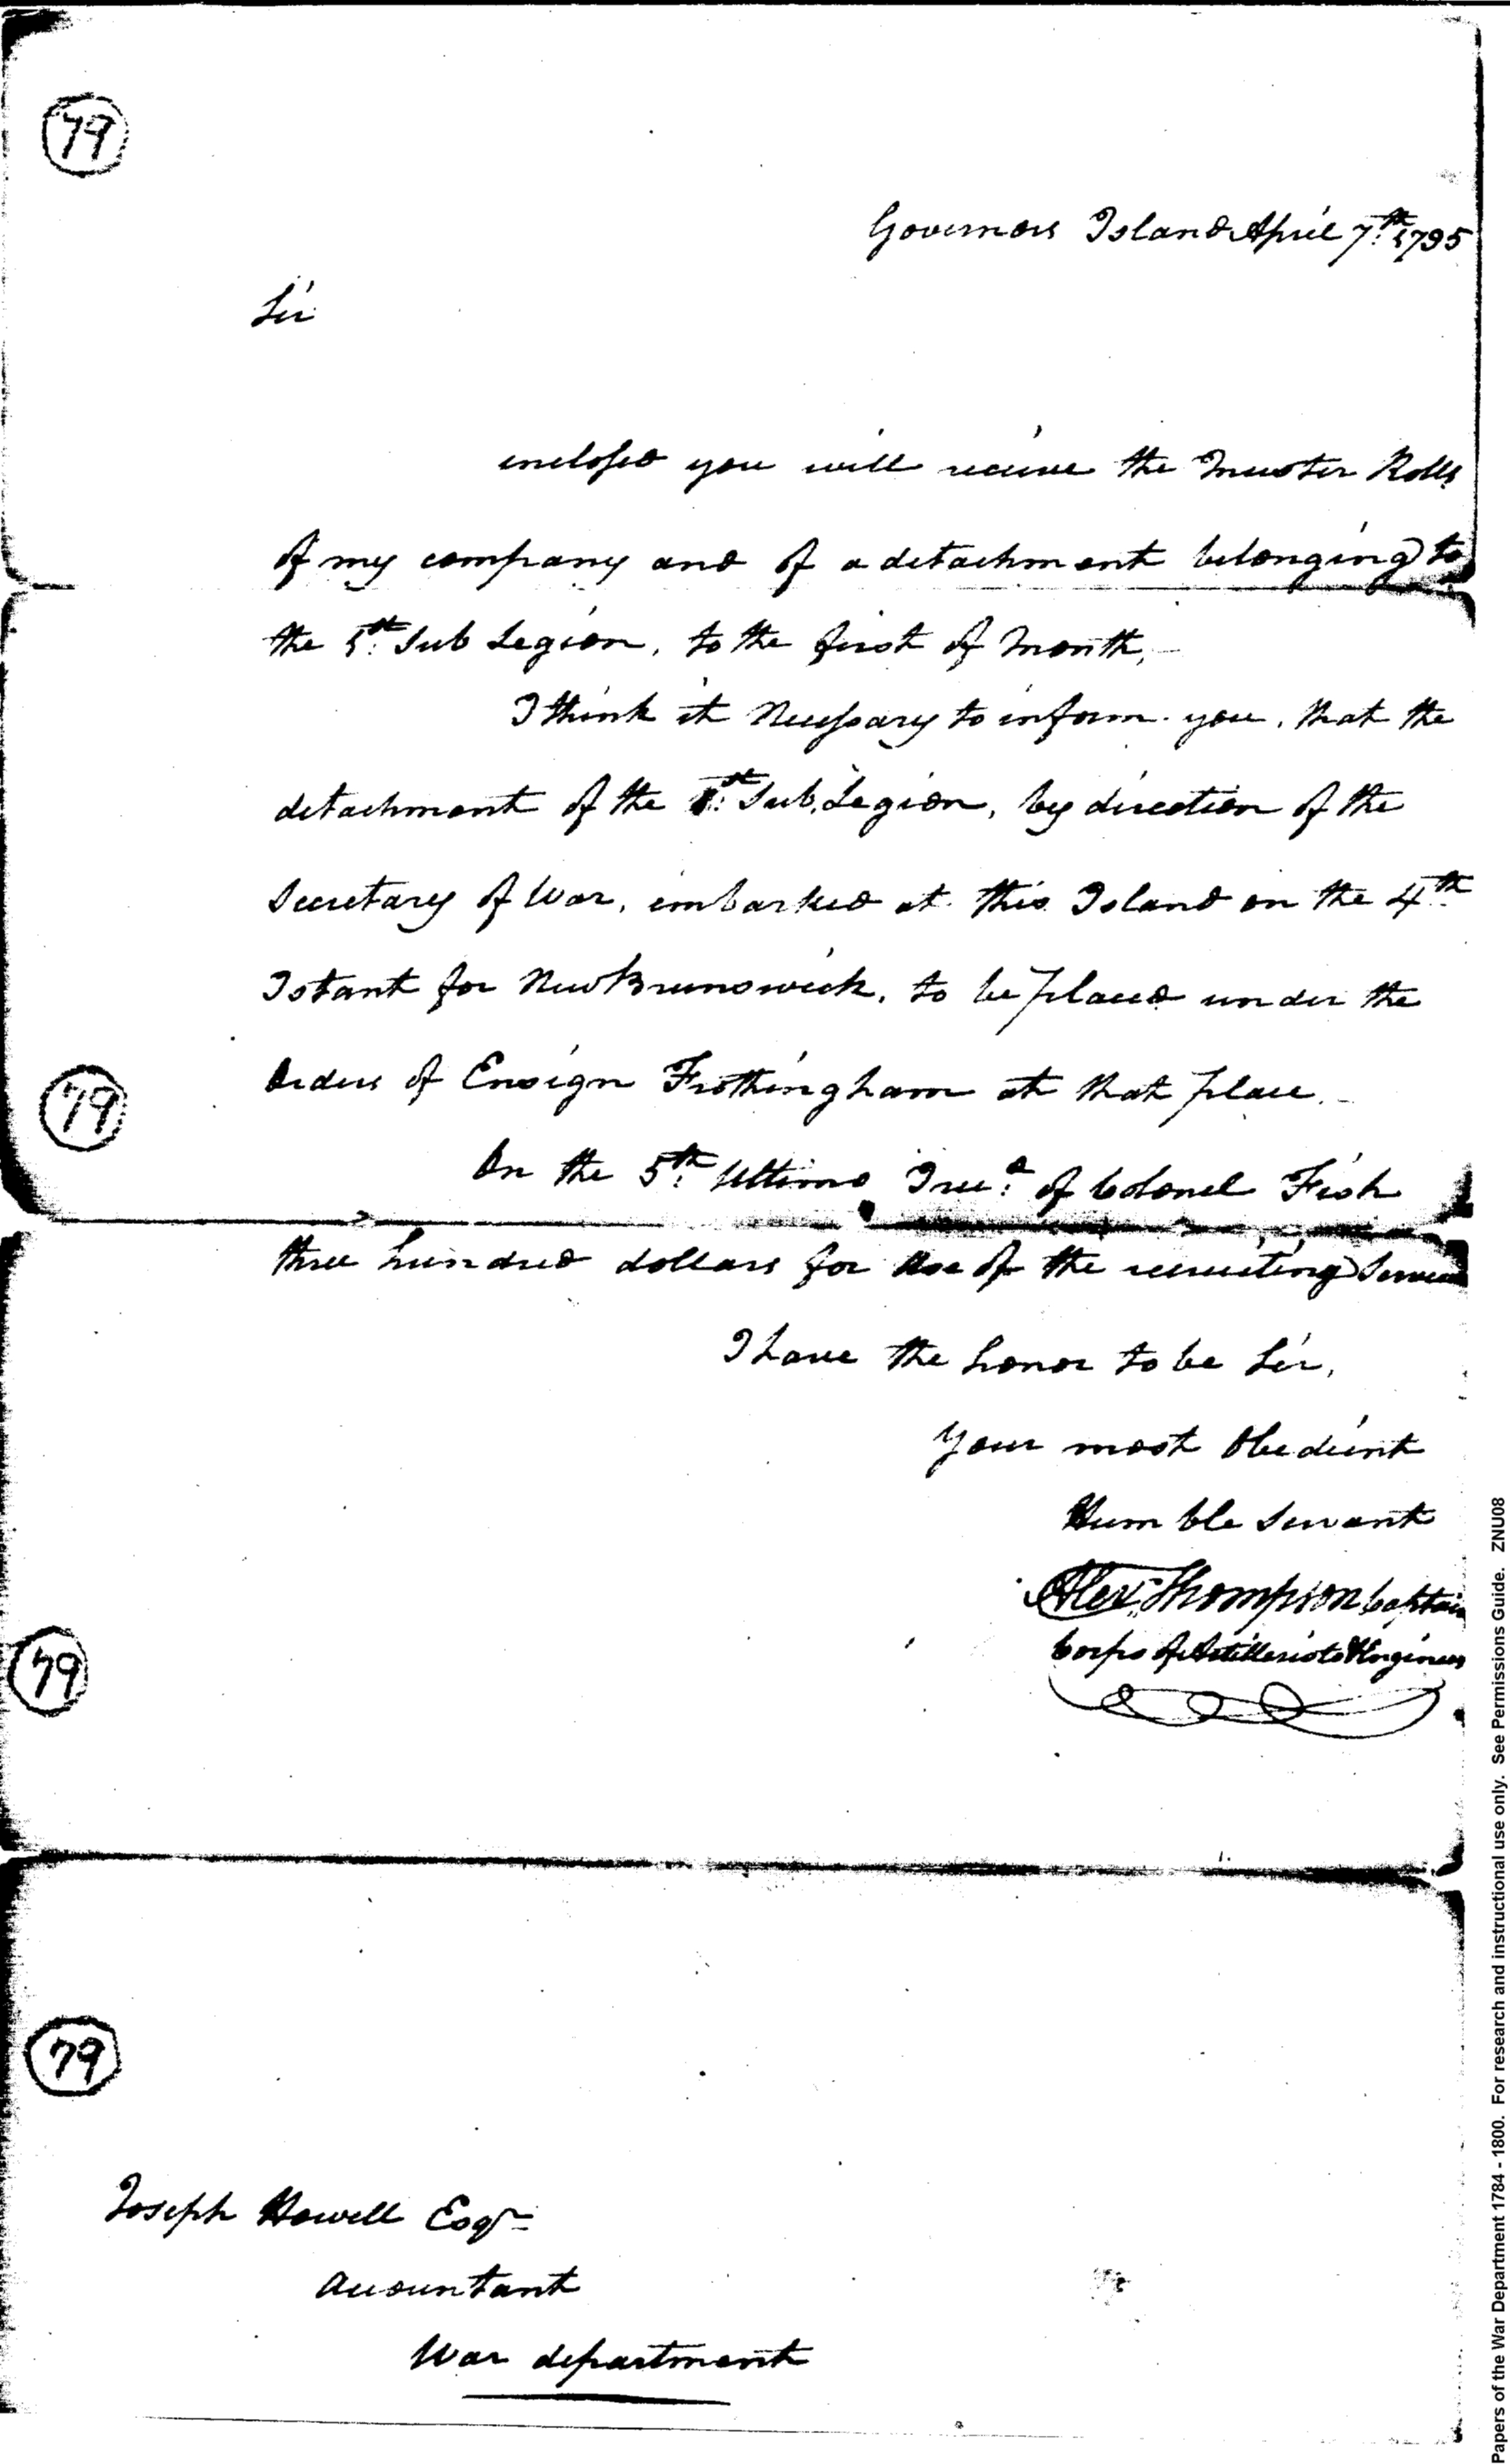 79
Governors Island April 7th 1795
Sir
inclosed you will receive the Muster Rolls
of my company and of a detachment belonging to
the 1st Sub Legion, to the first of Month,
I think it Necessary to inform you, that the
detachment of the 1st Sub Legion, by direction of the
Secretary of War, embarked at this Island on the 4th
Istant for New Brunswick, to be placed under the
79
Orders of Ensign Frothingham at that place.
On the 5th Ultimo I recd of Colonel Fish
three hundred dollars for use of the recruiting Service
I have the honor to be Sir,
Your most Obedient
Humble Servant
Alexr Thompson Captain
79
Corps of Artillerists & Engineers
79
Joseph Howell Esqr
Accountant
War department
Papers of the War Department 1784 - 1800. For research and instructional use only. See Permissions Guide. ZNU08